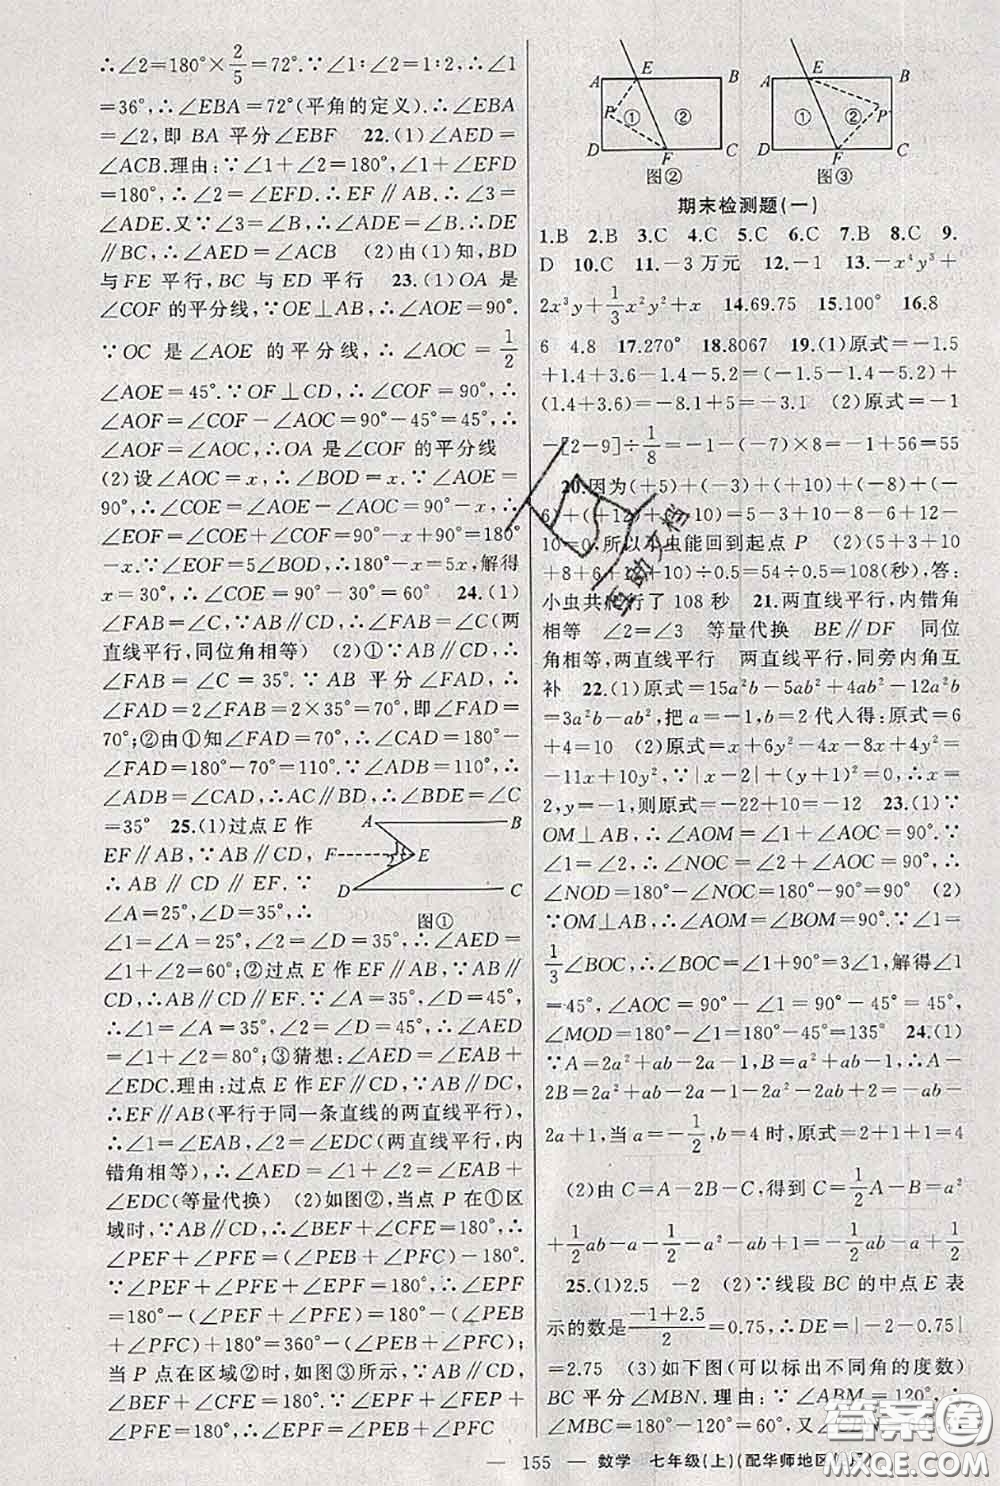 ∴∠2=180°×2/5=72°.∵∠1∶∠2=1∶2,∴∠1
=36°,∴∠EBA=72°(平角的定义).∴∠EBA
=∠2,即 BA 平分∠EBF 22.(1)∠AED=
∠ACB.理由:∵∠1+∠2=180°,∠1+∠EFD
=180°,∴∠2=∠EFD.∴EF∥AB.∴∠3=
∠ADE.又∵∠3=∠B,∴∠ADE=∠B.∴DE
∥BC,∴∠AED=∠ACB (2)由(1)知,BD
与FE 平行,BC 与 ED 平行 23.(1)OA 是
∠COF 的平分线,∵OE⊥AB,∴∠AOE=90°.
∵OC 是 ∠AOE 的平分线,∴∠AOC=1/2
∠AOE=45°.∵OF⊥CD,∴∠COF=90°,∴
∠AOF=∠COF-∠AOC=90°-45°=45°,∴
∠AOF=∠AOC,∴OA 是∠COF 的平分线
(2)设∠AOC=x,∴∠BOD=x.∵∠AOE=
90°,∴∠COE=∠AOE-∠AOC=90°-x,∴
∠EOF=∠COE+∠COF=90°-x+90°=180°
-x.∵∠EOF=5∠BOD,∴180°-x=5x,解得
x=30°,∴∠COE=90°-30°=60° 24.(1)
∠FAB=∠C,∵AB∥CD,∴∠FAB=∠C(两
直线平行,同位角相等) (2)①∵AB∥CD,∴
∠FAB=∠C=35°.∵AB 平分∠FAD,∴
∠FAD=2∠FAB=2×35°=70°,即∠FAD=
70°;②由①知∠FAD=70°,∴∠CAD=180°-
∠FAD=180°-70°=110°,∵∠ADB=110°,∴
∠ADB=∠CAD,∴AC∥BD,∴∠BDE=∠C
=35° 25.(1)过点 E 作
EF∥AB,∵AB∥CD,
∴AB∥CD∥EF.∵
∠A=25°,∠D=35°,∴
A B
F 1 2 E
D C
图①
∠1=∠A=25°,∠2=∠D=35°,∴∠AED=
∠1+∠2=60°;②过点 E 作 EF∥AB,∵AB∥
CD,∴AB∥CD∥EF.∵∠A=35°,∠D=45°,
∴∠1=∠A=35°,∠2=∠D=45°,∴∠AED
=∠1+∠2=80°;③猜想:∠AED=∠EAB+
∠EDC.理由:过点 E 作 EF∥CD,∵AB∥DC,
∴EF∥AB(平行于同一条直线的两直线平行),
∴∠1=∠EAB,∠2=∠EDC(两直线平行,内
错角相等),∴∠AED=∠1+∠2=∠EAB+
∠EDC(等量代换) (2)如图②,当点 P 在①区
域时,∵AB∥CD,∴∠BEF+∠CFE=180°,∴
∠PEF+∠PFE=(∠PEB+∠PFC)-180°.
∵∠PEF+∠PFE+∠EPF=180°,∴∠EPF
=180°-(∠PEF+∠PFE)=180°-(∠PEB
+∠PFC)+180°=360°-(∠PEB+∠PFC);
当 P 点在区域②时,如图③所示,∵AB∥CD,∴
∠BEF+∠CFE=180°.∵∠EPF+∠FEP+
∠PFE=180°,∴∠EPF=∠PEB+∠PFC
A E B
P ① ②
D F C
图②
A E B
① ② P
D F C
图③
期末检测题(一)
1.B 2.B 3.C 4.C 5.C 6.C 7.B 8.C 9.
D 10.C 11.-3万元 12.-1 13.-x⁴y³+
2x³y+1/3x²y²+x 14.69.75 15.100° 16.8
6 4.8 17.270° 18.8067 19.(1)原式=-1.5
+1.4+3.6-1.4-5.2=(-1.5-1.4-5.2)+
(1.4+3.6)=-8.1+5=-3.1 (2)原式=-1
-[2-9]÷1/8=-1-(-7)×8=-1+56=55
20.因为(+5)+(-3)+(+10)+(-8)+(-
6)+(+12)+(-10)=5-3+10-8-6+12-
10=0,所以小虫能回到起点 P (2)(5+3+10
+8+6+12+10)÷0.5=54÷0.5=108(秒),答:
小虫共爬行了 108 秒 21.两直线平行,内错角
相等 ∠2=∠3 等量代换 BE∥DF 同位
角相等,两直线平行 两直线平行,同旁内角互
补 22.(1)原式=15a²b-5ab²+4ab²-12a²b
=3a²b-ab²,把 a=-1,b=2 代入得:原式=6
+4=10 (2)原式=x+6y²-4x-8x+4y²=
-11x+10y²,∵|x-2|+(y+1)²=0,∴x=
2,y=-1,则原式=-22+10=-12 23.(1)∵
OM⊥AB,∴∠AOM=∠1+∠AOC=90°.∵
∠1=∠2,∴∠NOC=∠2+∠AOC=90°,∴
∠NOD=180°-∠NOC=180°-90°=90° (2)
∵OM⊥AB,∴∠AOM=∠BOM=90°.∵∠1=
1/3∠BOC,∴∠BOC=∠1+90°=3∠1,解得∠1
=45°,∠AOC=90°-∠1=90°-45°=45°,
∠MOD=180°-∠1=180°-45°=135° 24.(1)
∵A=2a²+ab-2a-1,B=a²+ab-1,∴A-
2B=2a²+ab-2a-1-2a²-2ab+2=-ab-
2a+1,当 a=-1/2,b=4 时,原式=2+1+1=4
(2)由 C=A-2B-C,得到 C=1/2A-B=a²
+1/2ab-a-1/2-a²-ab+1=-1/2ab-a+1/2
25.(1)2.5 -2 (2)∵线段 BC 的中点 E 表
示的数是(-1+2.5)/2=0.75,∴DE=|-2-0.75|
=2.75 (3)如下图(可以标出不同角的度数)
BC 平分∠MBN.理由:∵∠ABM=120°,∴
∠MBC=180°-120°=60°,又∠
— 155 — 数学 七年级(上)(配华师地区
互助文档
答案圈